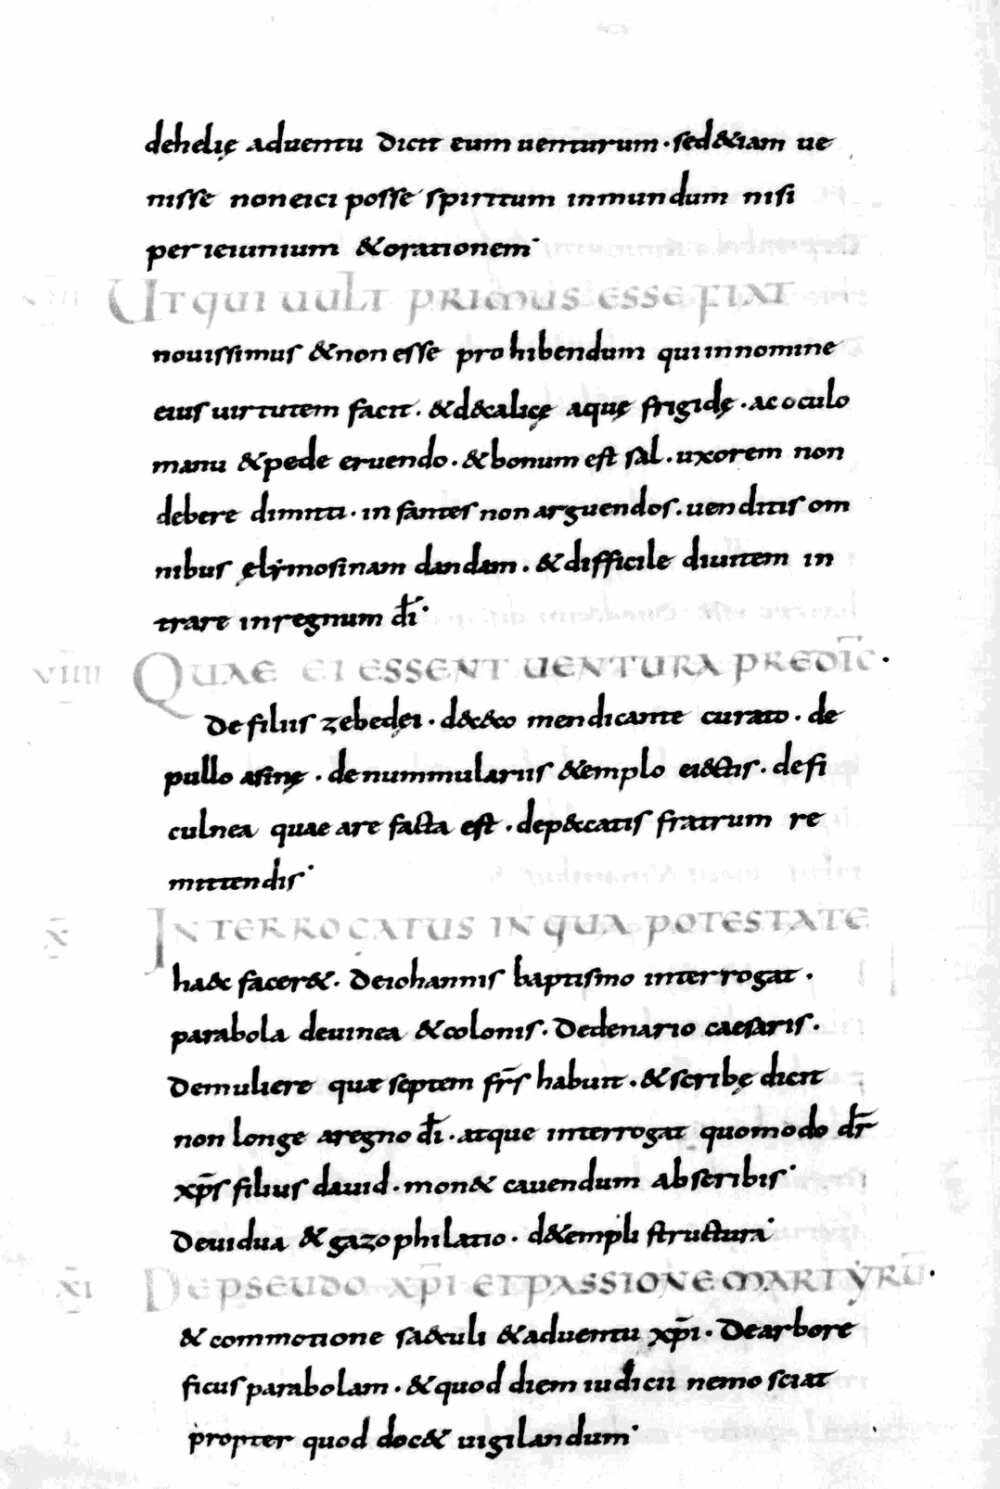 dehelię aduentu dicit eum uenturum · sed &iam ue
nisse non eici posse spiritum inmundum nisi
per ieiunium & orationem·
VIII UT QUI UULT PRIMUS ESSE FIAT
nouissimus & non esse prohibendum qui in nomine
eius uirtutem facit · & d& calicę aquę frigidę · ac oculo
manu & pede eruendo · & bonum est sal · uxorem non
debere dimitti · infantes non arguendos · uenditis om
nibus ęlẏmosinam dandam · & difficile diuitem in
trare in regnum d̄i·
VIIII QUAE EI ESSENT UENTURA PREDIC̄ ·
De filiis zebedęi · d& cęco mendicante curato · de
pullo asinę · de nummulariis & templo eiectis · de fi
culnea quae arefacta est · de p&catis fratrum re
mittendis·
X̄ INTERROGATUS IN QUA POTESTATE
haec facer& · De iohannis baptismo interrogat ·
parabola de uinea & colonis · De denario caesaris ·
De muliere quæ septem fr̄s habuit · & scribę dicit
non longe a regno d̄i · atque interrogat quomodo dr̄
xp̄s filius dauid · mon& cauendum ab scribis·
De uidua & gazophilatio · d& templi structura·
X̄I DE PSEUDO XP̄I ET PASSIONE MARTẎRŪ ·
& commotione sæculi & aduentu xp̄i · De arbore
ficus parabolam · & quod diem iudicii nemo sciat
propter quod doc& uigilandum·